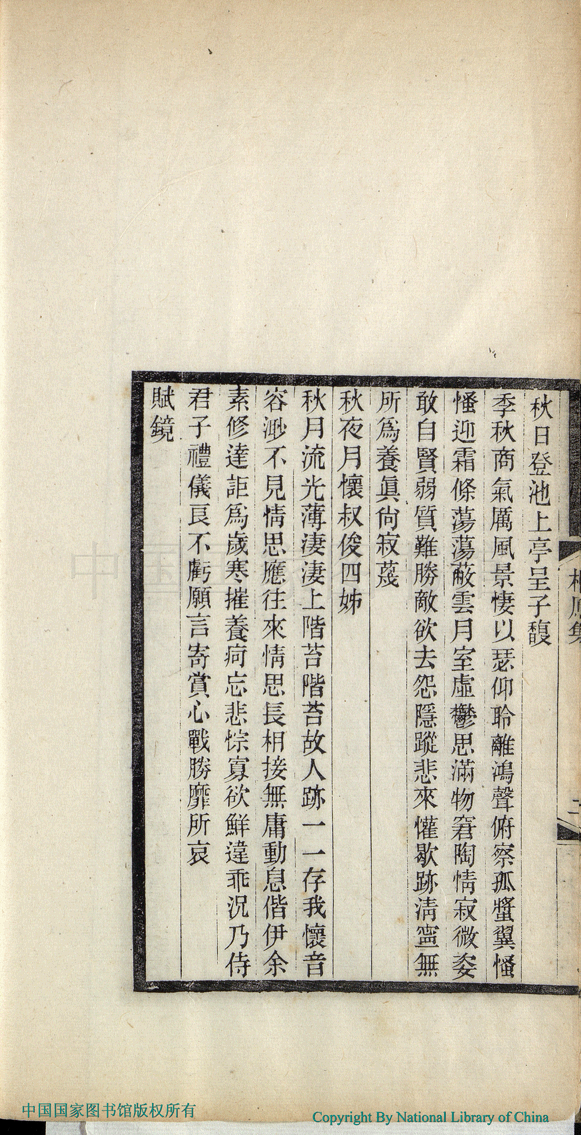 秋日登池上亭呈子馥
季秋商氣厲風景悽以瑟仰聆離鴻聲俯察孤螿翼慅
慅迎霜條蕩蕩蔽雲月室虛鬱思滿物窘陶情寂微姿
敢自賢弱質難勝敵欲去怨隱蹤悲來懽歇跡淸寧無
所爲養眞尙寂蔑
秋夜月懷叔俊四姊
秋月流光薄淒淒上階苔階苔故人跡一一存我懷音
容渺不見情思應往來情思長相接無庸動息偕伊余
素修達詎爲歲寒摧養疴忘悲悰寡欲鮮違乖況乃侍
君子禮儀良不虧願言寄賞心戰勝靡所哀
賦鏡
中国国家图书馆版权所有
Copyright By National Library of China